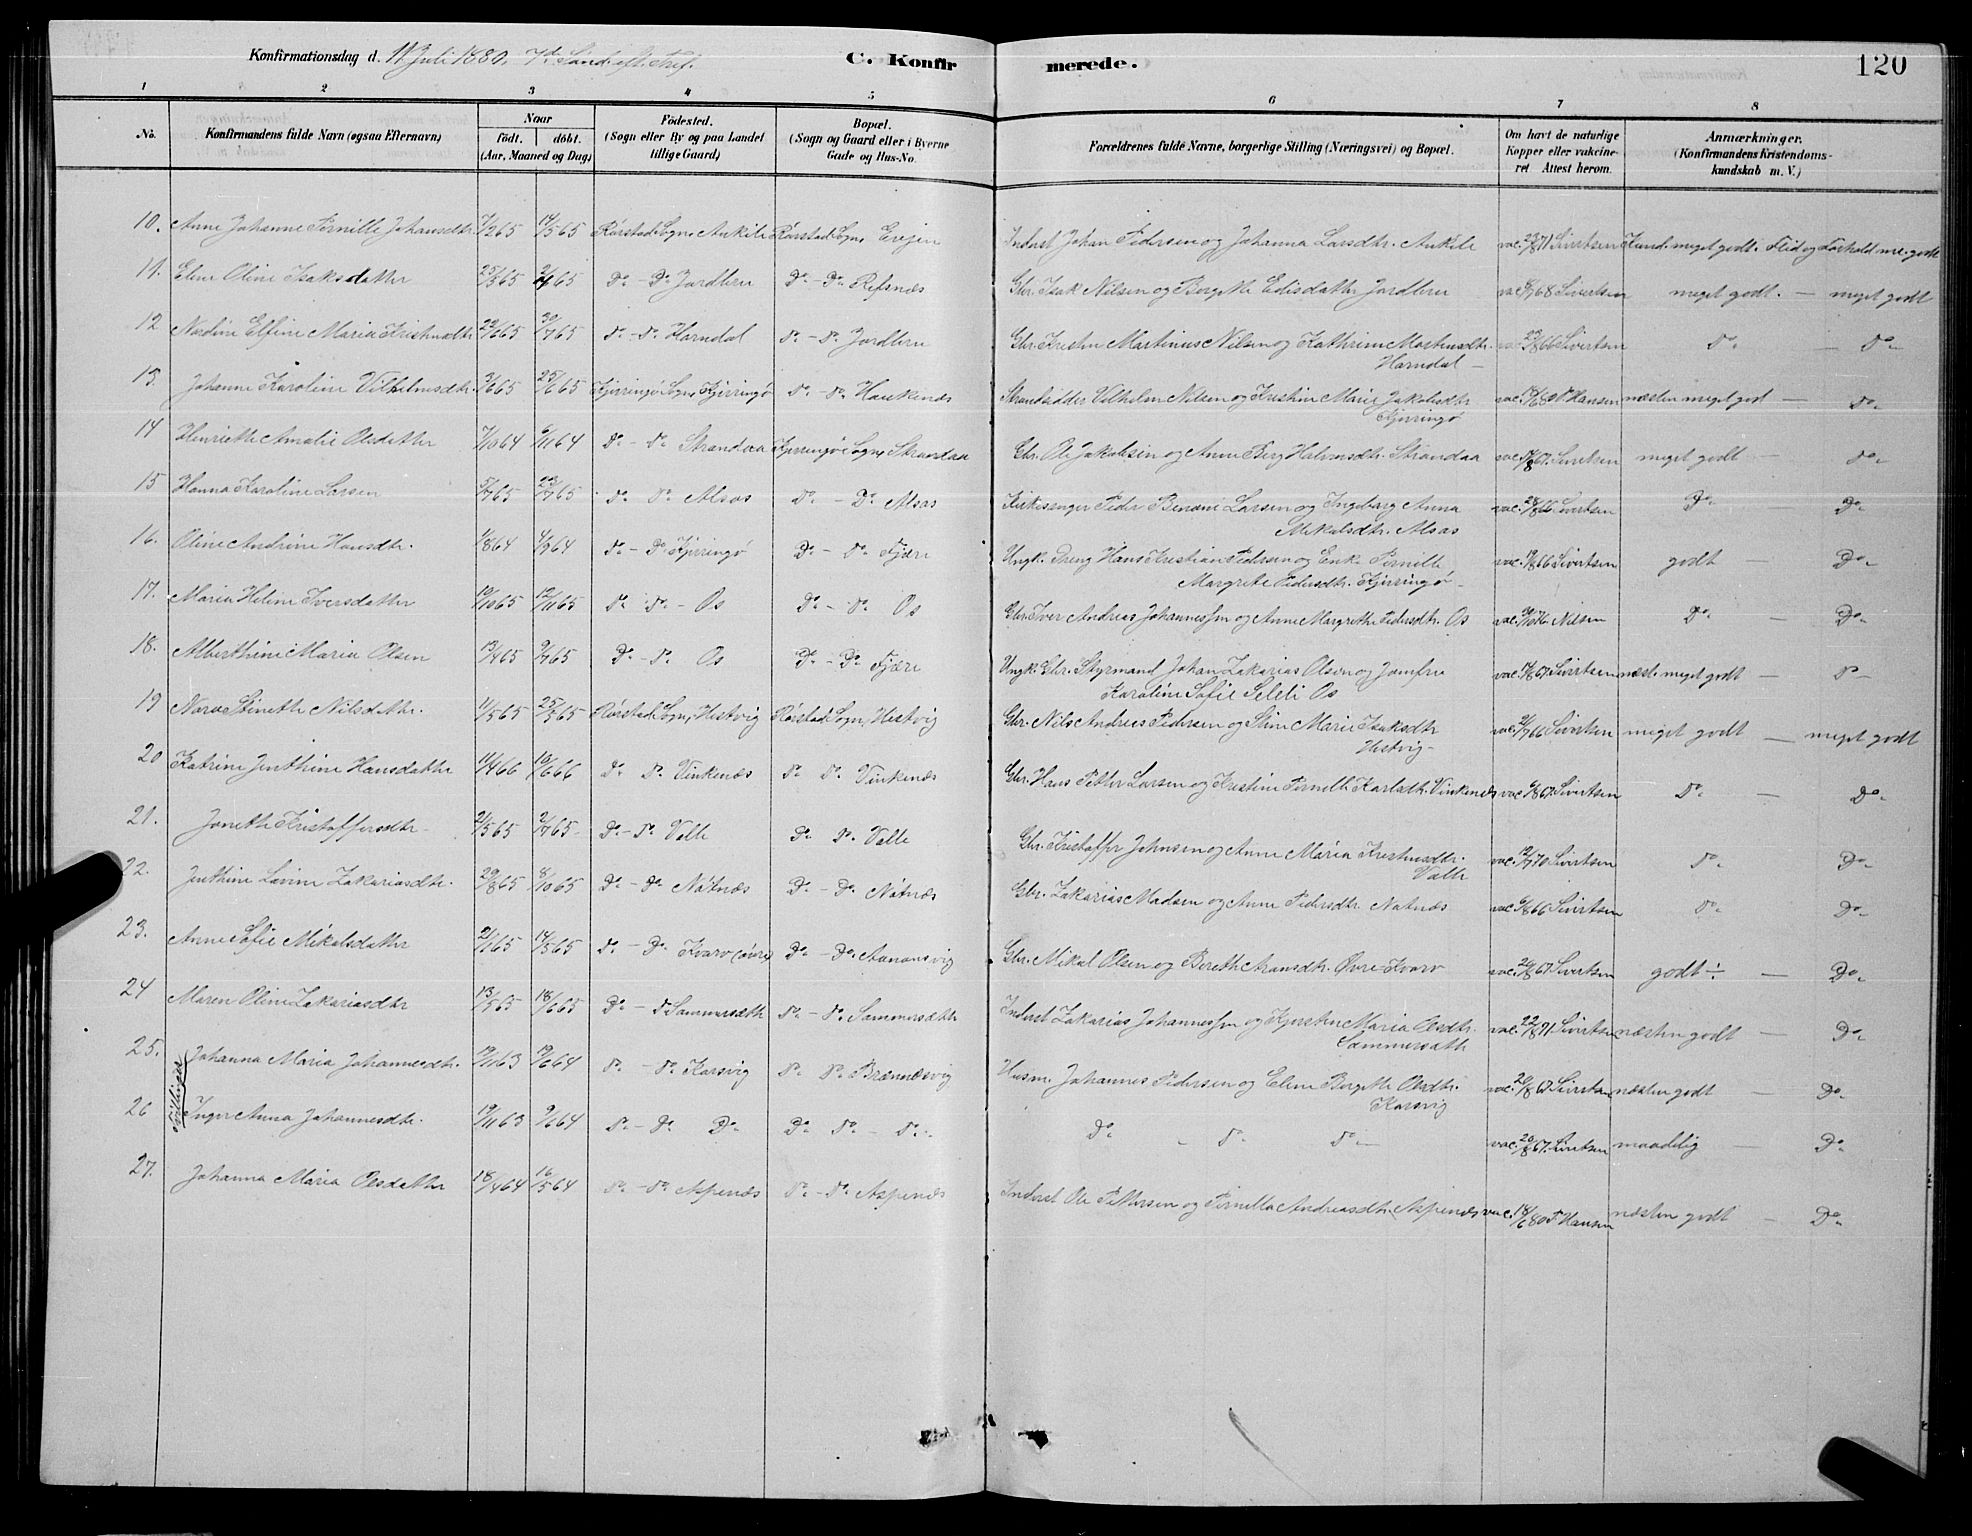 Konfirmationsdag d. 11 Juli 1880, 7de Sønd. eft. Tref.
C. Konfirmerede.
120
1 2 3 4 5 6 7 8
No. Konfirmandens fulde Navn (ogsaa Efternavn) Naar födt. döbt. (Aar, Maaned og Dag) Födested. (Sogn eller By og paa Landet tillige Gaard) Bopæl. (Sogn og Gaard eller i Byerne Gade og Hus-No. Forældrenes fulde Navne, borgerlige Stilling (Næringsvei) og Bopæl. Om havt de naturlige Kopper eller vakcineret Attest herom. Anmærkninger. (Konfirmandens Kristendomskundskab m. V.)
10. Anne Johanne Pernille Johansdtr. 7/2 65 14/5 65 Rørstad Sogn, Ankile Rørstad Sogn, Erejen Inderst Johan Pedersen og Johanna Larsdtr. Ankile vac. 23/8 71 Sivertsen Kund. meget godt. Flid og Forhold me. godt
11. Eline Oline Isaksdatter 25/3 65 65 Do - Do Jordbru Do - Do Refsnæs Gbr. Isak Nilsen og Bergitte Edisdatter Jordbru vac. 68 Sivertsen meget godt. - meget godt
12 Nordine Elfine Maria Kristensdtr 29/6 65 30/7 65 Do - Do Horndal Do - Do Jordbru Gbr. Kristen Martinus Nilsen og Kathrine Mortensdtr. Horndal - vac. 23/8 66 Sivertsen Do - Do
13. Johanne Karoline Vilhelmsdtr. 3/6 65 25/6 65 Kjerringö Sogn, Kjerringö Do - Do Haukenæs Strandsidder Vilhelm Nilsen og Kristine Marie Jakobsdtr Kjerringö vac. 18/6 80 P Hansen næsten meget god - Do
14 Henriette Amalie Olsdatter 7/10 64 6/11 64 Do - Do Strandaa Kjerringö Sogn, Strandaa Gbr. Ole Jakobsen og Anne Berg Halvorsdtr. Strandaa vac. 67. Sivertsen meget godt - Do
15 Hanna Karoline Larsen 5/7 65 23/7 65 Do Do Alsos Do - Do Alsos Kirkesanger Peder Benoni Larsen og Ingeborg Anna Mikalsdtr. Alsos vac. 28/8 66 Sivertsen Do Do
16. Oline Andrine Hansdtr. 1/8 64 4/9 64 Do - Do Kjerringö Do - Do Fjære Ungk. Dreng Hans Kristian Pedersen og Enke Pernille Margrete Pedersdtr. Kjerringö - vac. 19/8 66 Sivertsen godt - Do
17. Maria Helene Iversdatter 10/10 65 12/11 65 Do Do - Os Do - Do Os Gbr. Iver Andreas Johannessen og Anne Margrethe Pedersdtr. Os vac. 76. Nilsen Do - Do
18. Alberthine Maria Olsen 13/4 65 9/7 65 Do - Do Os Do - Do Fjære Ungk. Gbr. Styrmand Johan Zakarias Olsen og Jomfru Karoline Sofie Seldi Os vac. 67. Sivertsen næst. meget godt - Do
19 Nora Stinette Nilsdatter. 11/5 65 25/5 65 Rørstad Sogn, Hestvig Rørstad Sogn, Hestvig Gbr. Nils Andreas Pedersen og Stine Marie Isaksdtr Hestvig - vac. 2/7 66 Sivertsen meget godt - meget godt
20 Katrine Jenthine Hansdatter 11/4 66 10/6 66 Do Do Vinkenæs Do Do Vinkenæs Gbr. Hans Petter Larsen og Kristine Pernille Karlsdtr. Vinkenæs vac. 6/8 67. Sivertsen Do - Do
21. Jonette Kristoffersdtr - 21/5 65 2/7 65 - Do - Do Valle Do Do Valle Gbr. Kristoffer Johnsen og Anne Maria Kristensdtr. Valle vac. 12/7 70 Sivertsen Do Do
22. Jenthine Lovine Zakariasdtr. 29/8 65 8/10 65 Do - Do Nötnæs Do - Do Nötnæs Gbr. Zakarias Madsen og Anne Pedersdtr. Nötnæs vac. 6/8 66 Sivertsen Do Do
23. Anne Sofie Mikalsdatter 21/1 65 14/5 65 Do - Do Kvarv (övre) Do - Do Aanonsvig Gbr. Mikal Olsen og Berethe Aronsdtr. Övre Kvarv vac. 20/8 67. Sivertsen godt ÷ - Do
24 Maren Oline Zakariasdtr 13/5 65 18/6 65 Do - Do Sommersæth Do - Do Sommersæth Inderst Zakarias Johannessen og Kjersten Maria Olsdtr. Sommersæth vac. 22/8 71 Sivertsen næsten godt - Do
25. Tvillinger Johanna Maria Johannesdtr. 19/11 63 19/6 64 Do - Do Korsvig Do Do Brænnæsvig Husm. Johannes Pedersen og Elene Bergitte Olsdtr. Korsvig vac. 20/8 67 Sivertsen næsten godt - Do
26 Inger Anna Johannesdtr. 19/11 63 9/6 64 Do - Do Do Do Do - Do Do - Do Do - vac. 20/8 67. Sivertsen maadelig - Do
27. Johanna Maria Olsdatter 18/4 64 16/5 64 Do - Do Aspenæs Do - Do Aspenæs Inderst Ole Pettersen og Pernella Andreasdtr. Aspenæs vac. 18/6 80 P Hansen næsten godt - Do